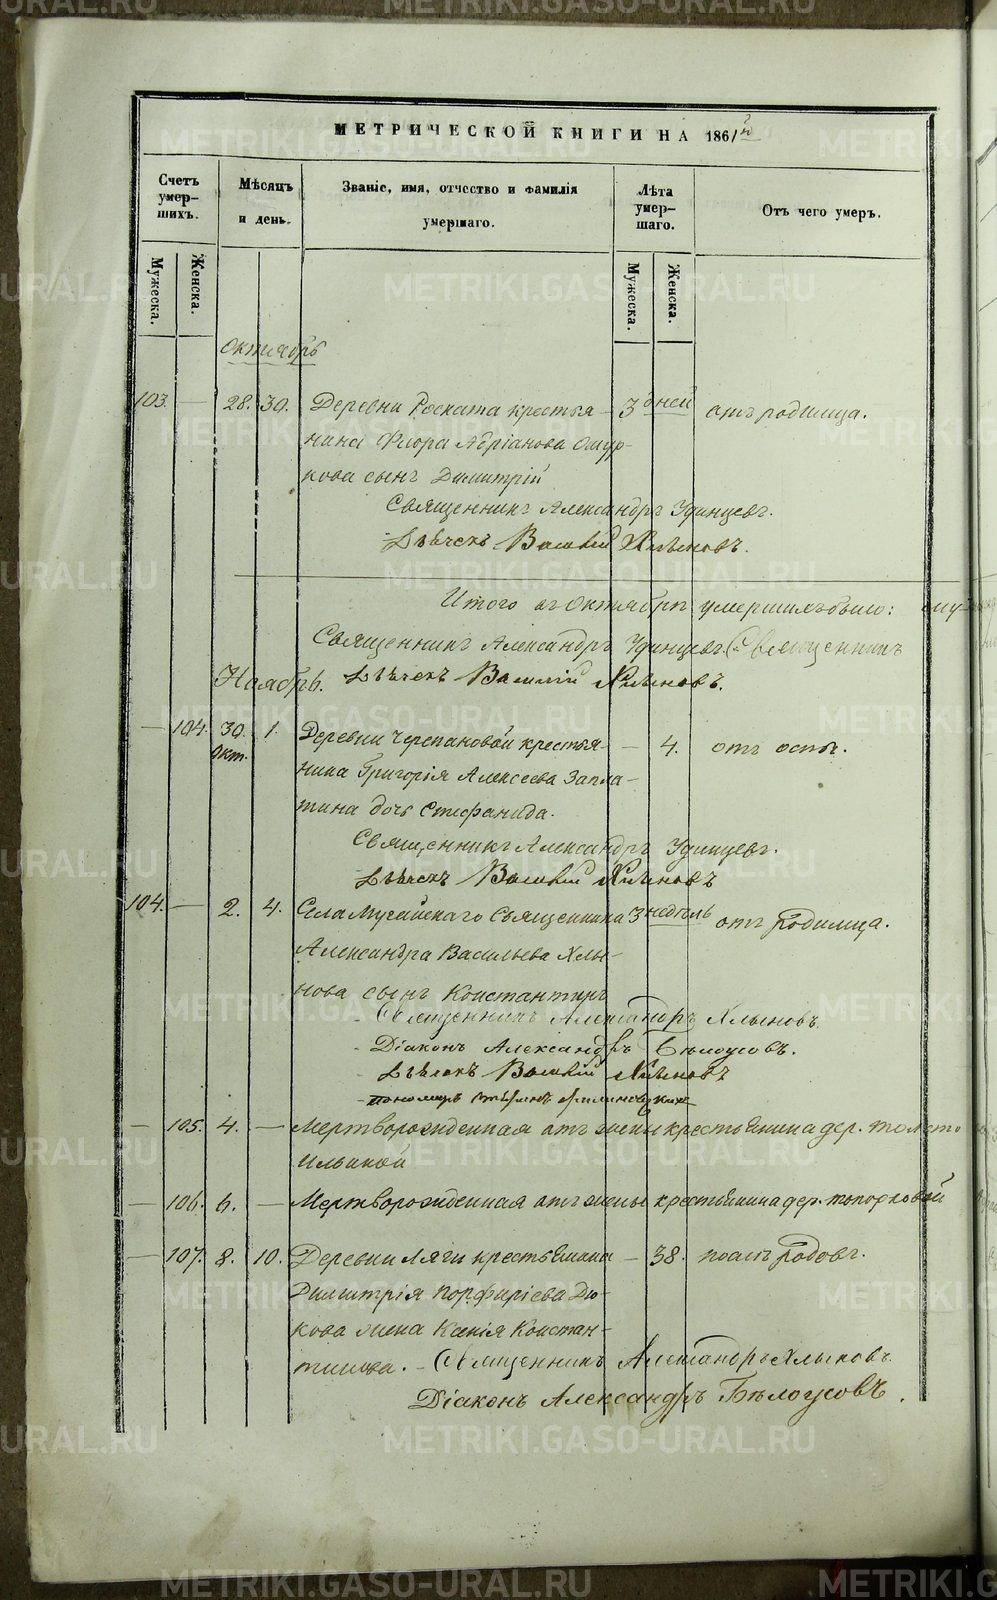 МЕТРИЧЕСКОЙ КНИГИ НА 1861й
Счетъ умер-шихъ.
Мѣсяцъ и день.
Званіе, имя, отчество и фамилія умершаго.
Лѣта умер-шаго.
Отъ чего умеръ.
Мужеска. Женска.
Мужеска. Женска.
Октябрь
103. — 28. 30. Деревни Роската крестья- 3 дней отъ родимца.
нина Флора Адріанова
кова сынъ Димитрій
Священникъ Александръ Удинцевъ.
Дьячекъ Василій Хлыновъ.
Итого въ Октябрѣ умершихъ было:
Священникъ Александръ Удинцевъ. Священникъ
Ноябрь. Дьячекъ Василій Хлыновъ.
— 104. 30. 1. Деревни Черепановой крестья- — 4. отъ оспы.
Окт.
нина Григорія Алексеева Запла-
тина дочь Стефанида.
Священникъ Александръ Удинцевъ.
Дьячекъ Василій Хлыновъ
104. — 2. 4. Села Мугайскаго Священника 3 недѣль отъ родимца.
Александра Васильева Хлы-
нова сынъ Константинъ
Священникъ Александръ Хлыновъ.
Діаконъ Александръ Бѣлоусовъ.
Дьячекъ Василій Хлыновъ
пономарь
— 105. 4. — Мертворожденная отъ жены крестьянина дер.
Ильиной
— 106. 6. — Мертворожденная отъ жены крестьянина дер. Топорковой
— 107. 8. 10. Деревни Ляги крестьянина — 38. послѣ родовъ.
Димитрія Порфиріева Дю-
кова жена Ксенія Констан-
тинова. – Священникъ Александръ Хлыновъ.
Діаконъ Александръ Бѣлоусовъ.
METRIKI.GASO-URAL.RU